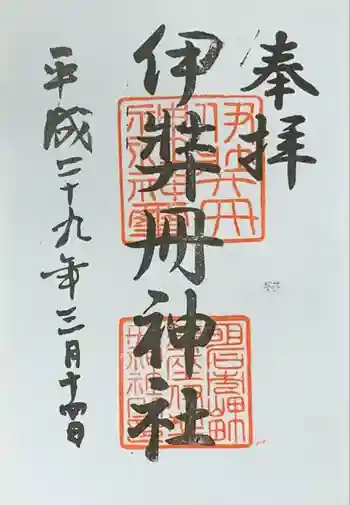 奉拝
伊弉冊神社
平成二十九年三月十四日